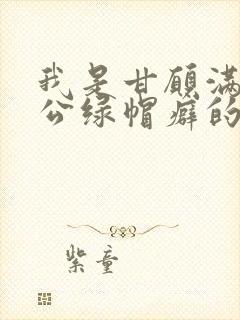 我是甘願滿
公绿帽癖的
紫童